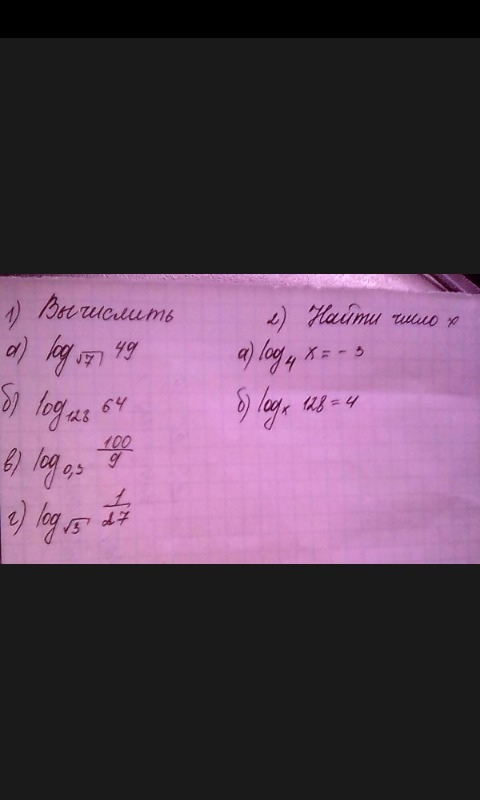 1) Вычислить
а) log√7 49
б) log128 64
в) log0,3 100/9
г) log√3 1/27
2) Найти число x
а) log4 x = -3
б) logx 128 = 4